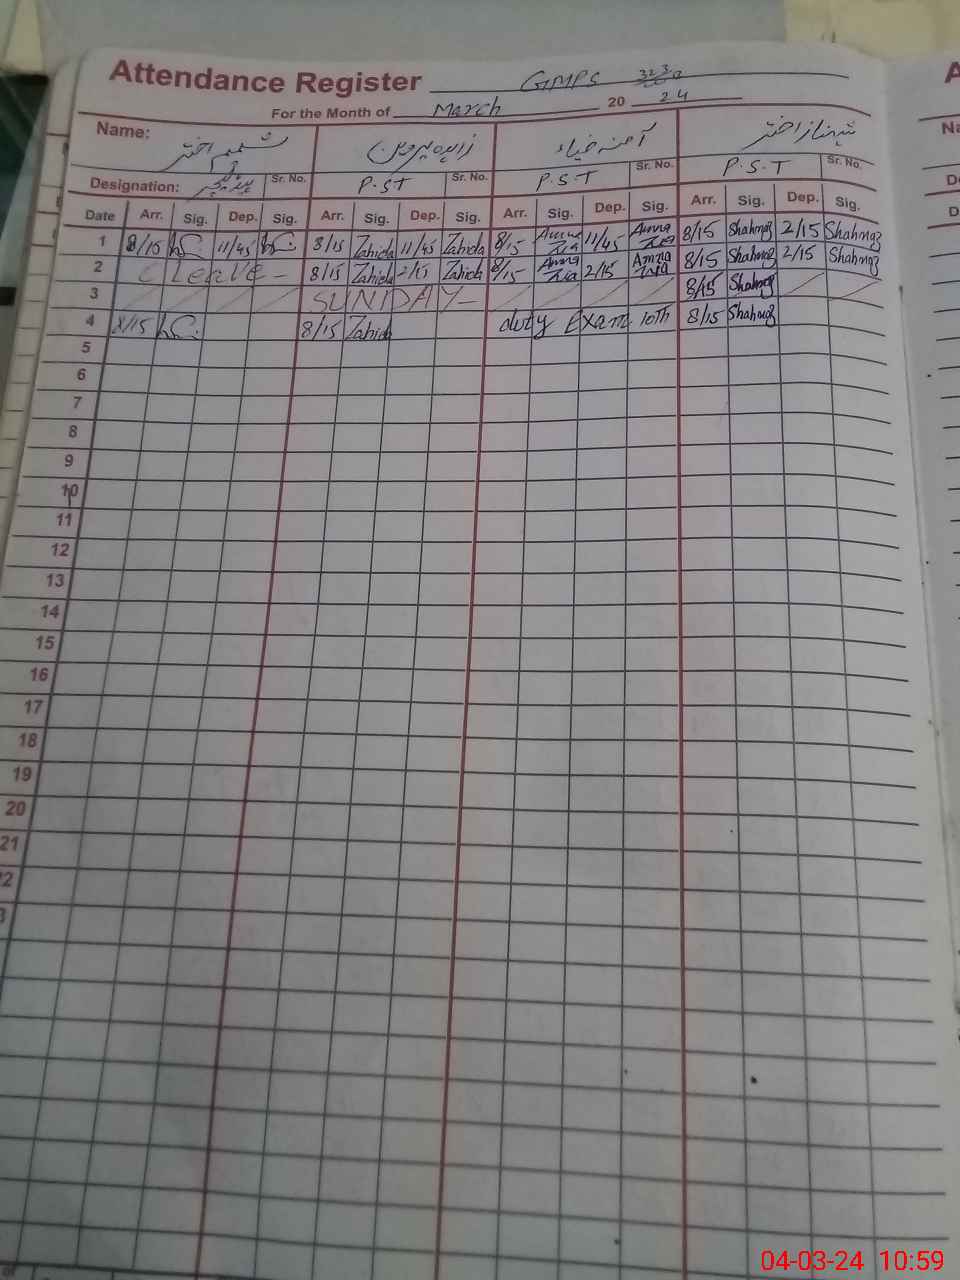 Attendance Register GMPS
For the Month of March 20 24
Name: شمیم اختر زاہدہ پروین آمنہ ضیاء شہناز اختر
Designation: Sr. No. P.S.T Sr. No. P.S.T Sr. No. P.S.T Sr. No.
Date Arr. Sig. Dep. Sig. Arr. Sig. Dep. Sig. Arr. Sig. Dep. Sig. Arr. Sig. Dep. Sig.
1 8/15 11/45 8/15 Zahida 11/45 Zahida 8/15 Amna Zia 11/45 Amna Zia 8/15 Shahnaz 2/15 Shahnaz
2 C Leave - 8/15 Zahida 2/15 Zahida 8/15 Amna Zia 2/15 Amna Zia 8/15 Shahnaz 2/15 Shahnaz
3 SUNDAY 8/15 Shahnaz
4 8/15 8/15 Zahida duty Exam 10th 8/15 Shahnaz
5
6
7
8
9
10
11
12
13
14
15
16
17
18
19
20
21
04-03-24 10:59